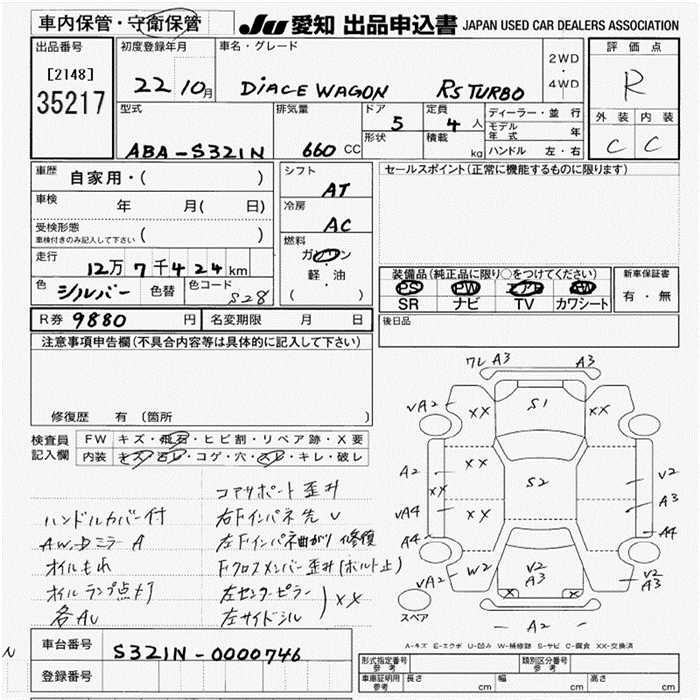 車内保管・守衛保管
JU 愛知 出品申込書 JAPAN USED CAR DEALERS ASSOCIATION
出品番号
[2148]
35217
初度登録年月
22 10月
車名・グレード
DIACE WAGON RS TURBO
2WD
・
4WD
評価点
R
外装 内装
C C
型式
ABA-S321N
排気量
660 CC
ドア
5
形状
定員
4人
積載
kg
ディーラー・並行
モデル年式 年
ハンドル 左・右
車歴
自家用・( )
車検
年 月( 日)
受検形態
車検付きのみ記入して下さい ( )
走行
12万7千424km
色
シルバー
色替
色コード
S28
シフト
AT
冷房
AC
燃料
ガソリン
・
軽・油
( )
セールスポイント(正常に機能するものに限ります)
装備品(純正品に限り○をつけてください)
PS PW エアB AW
SR ナビ TV カワシート
新車保証書
有・無
R券 9880 円
名変期限 月 日
後日品
注意事項申告欄(不具合内容等は具体的に記入して下さい)
修復歴 有 〔箇所
検査員
記入欄
FW キズ・飛石・ヒビ割・リペア跡・X要
内装 キズ・汚レ・コゲ・穴・スレ・キレ・破レ
コアサポート歪み
ハンドルカバー付
右Fインパネ先U
AW.Dミラー A
左Fインパネ曲がり修復
オイルもれ
Fクロスメンバー歪み(ボルト止)
オイルランプ点灯
左センターピラー
各AU
左サイドシル
XX
ワレ A3 A3
VA2 XX S1 XX
A2 XX XX S2 V2
A3
VA4 XX A4
A4
VA2 W2 V2
A3 V2
A3
X X
スペア
A2
A-キズ E-エクボ U-凹み W-補修跡 S-サビ C-腐食 XX-交換済
N
車台番号
S321N-0000746
登録番号
形式指定番号
参考
類別区分番号
参考
車庫証明用
参考
長さ cm
幅 cm
高さ cm